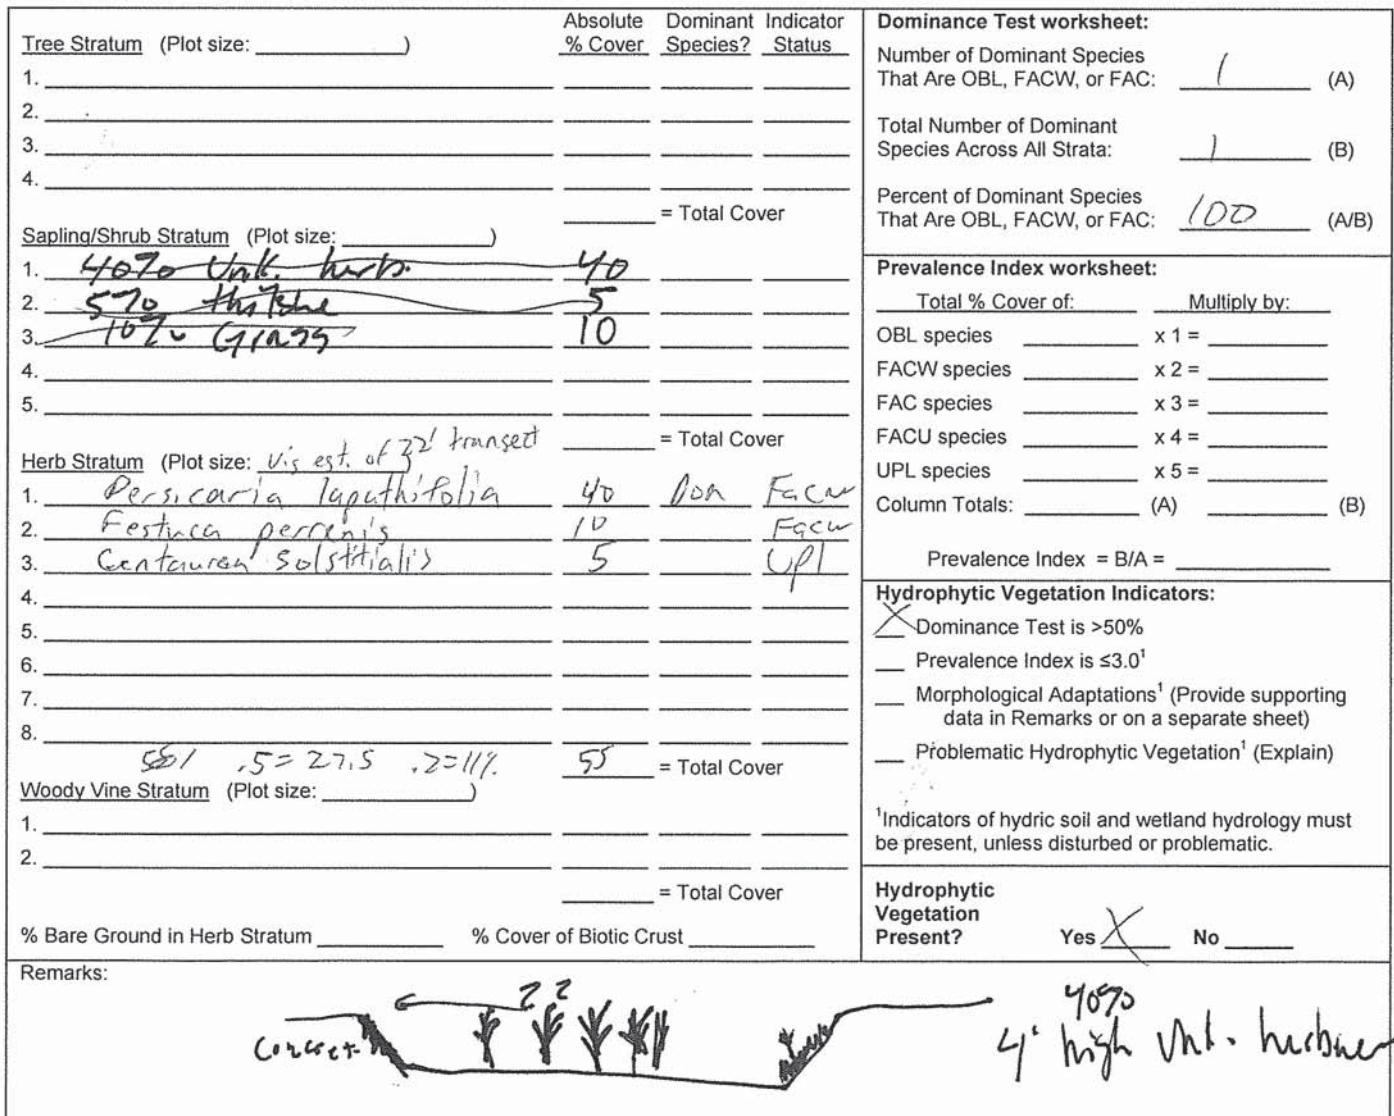 Absolute Dominant Indicator
Tree Stratum (Plot size: ____________) % Cover Species? Status
1.
2.
3.
4.
= Total Cover
Sapling/Shrub Stratum (Plot size: ____________)
1. 40% Unk. herb. 40
2. 5% 5
3. 10% Grass 10
4.
5.
= Total Cover
Herb Stratum (Plot size: Vis est. of 22' transect)
1. Persicaria lapathifolia 40 Dom Facw
2. Festuca perrenis 10 Facw
3. Centaurea Solstitialis 5 Upl
4.
5.
6.
7.
8.
.5=27.5 .2=11%. 55 = Total Cover
Woody Vine Stratum (Plot size: ____________)
1.
2.
= Total Cover
% Bare Ground in Herb Stratum ____________ % Cover of Biotic Crust ____________
Dominance Test worksheet:
Number of Dominant Species
That Are OBL, FACW, or FAC: 1 (A)
Total Number of Dominant
Species Across All Strata: 1 (B)
Percent of Dominant Species
That Are OBL, FACW, or FAC: 100 (A/B)
Prevalence Index worksheet:
Total % Cover of: Multiply by:
OBL species ____________ x 1 = ____________
FACW species ____________ x 2 = ____________
FAC species ____________ x 3 = ____________
FACU species ____________ x 4 = ____________
UPL species ____________ x 5 = ____________
Column Totals: ____________ (A) ____________ (B)
Prevalence Index = B/A = ____________
Hydrophytic Vegetation Indicators:
X Dominance Test is >50%
___ Prevalence Index is ≤3.0¹
___ Morphological Adaptations¹ (Provide supporting
data in Remarks or on a separate sheet)
___ Problematic Hydrophytic Vegetation¹ (Explain)
¹Indicators of hydric soil and wetland hydrology must
be present, unless disturbed or problematic.
Hydrophytic
Vegetation
Present? Yes X No ______
Remarks:
22
Concret
40%
4' high Unk.